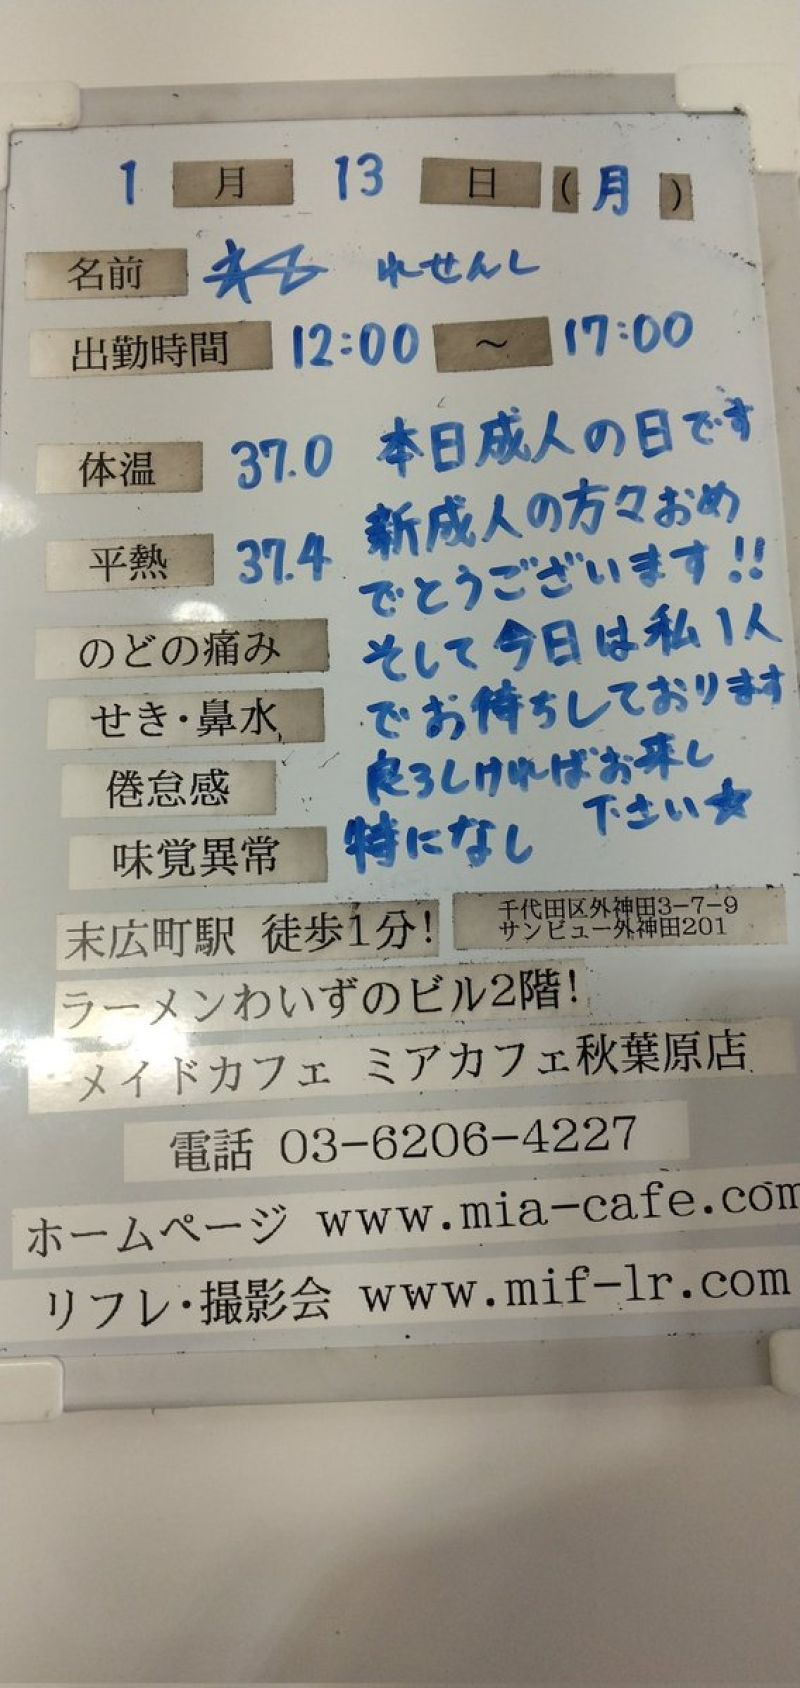 1 月 13 日 (月)
名前 れせんし
出勤時間 12:00 ～ 17:00
体温 37.0
平熱 37.4
のどの痛み
せき・鼻水
倦怠感
味覚異常 特になし
本日成人の日です
新成人の方々おめ
でとうございます!!
そして今日は私1人
でお待ちしております
良ろしければお来し
下さい☆
末広町駅 徒歩1分!
千代田区外神田3-7-9
サンビュー外神田201
ラーメンわいずのビル2階!
メイドカフェ ミアカフェ秋葉原店
電話 03-6206-4227
ホームページ www.mia-cafe.com
リフレ・撮影会 www.mif-lr.com